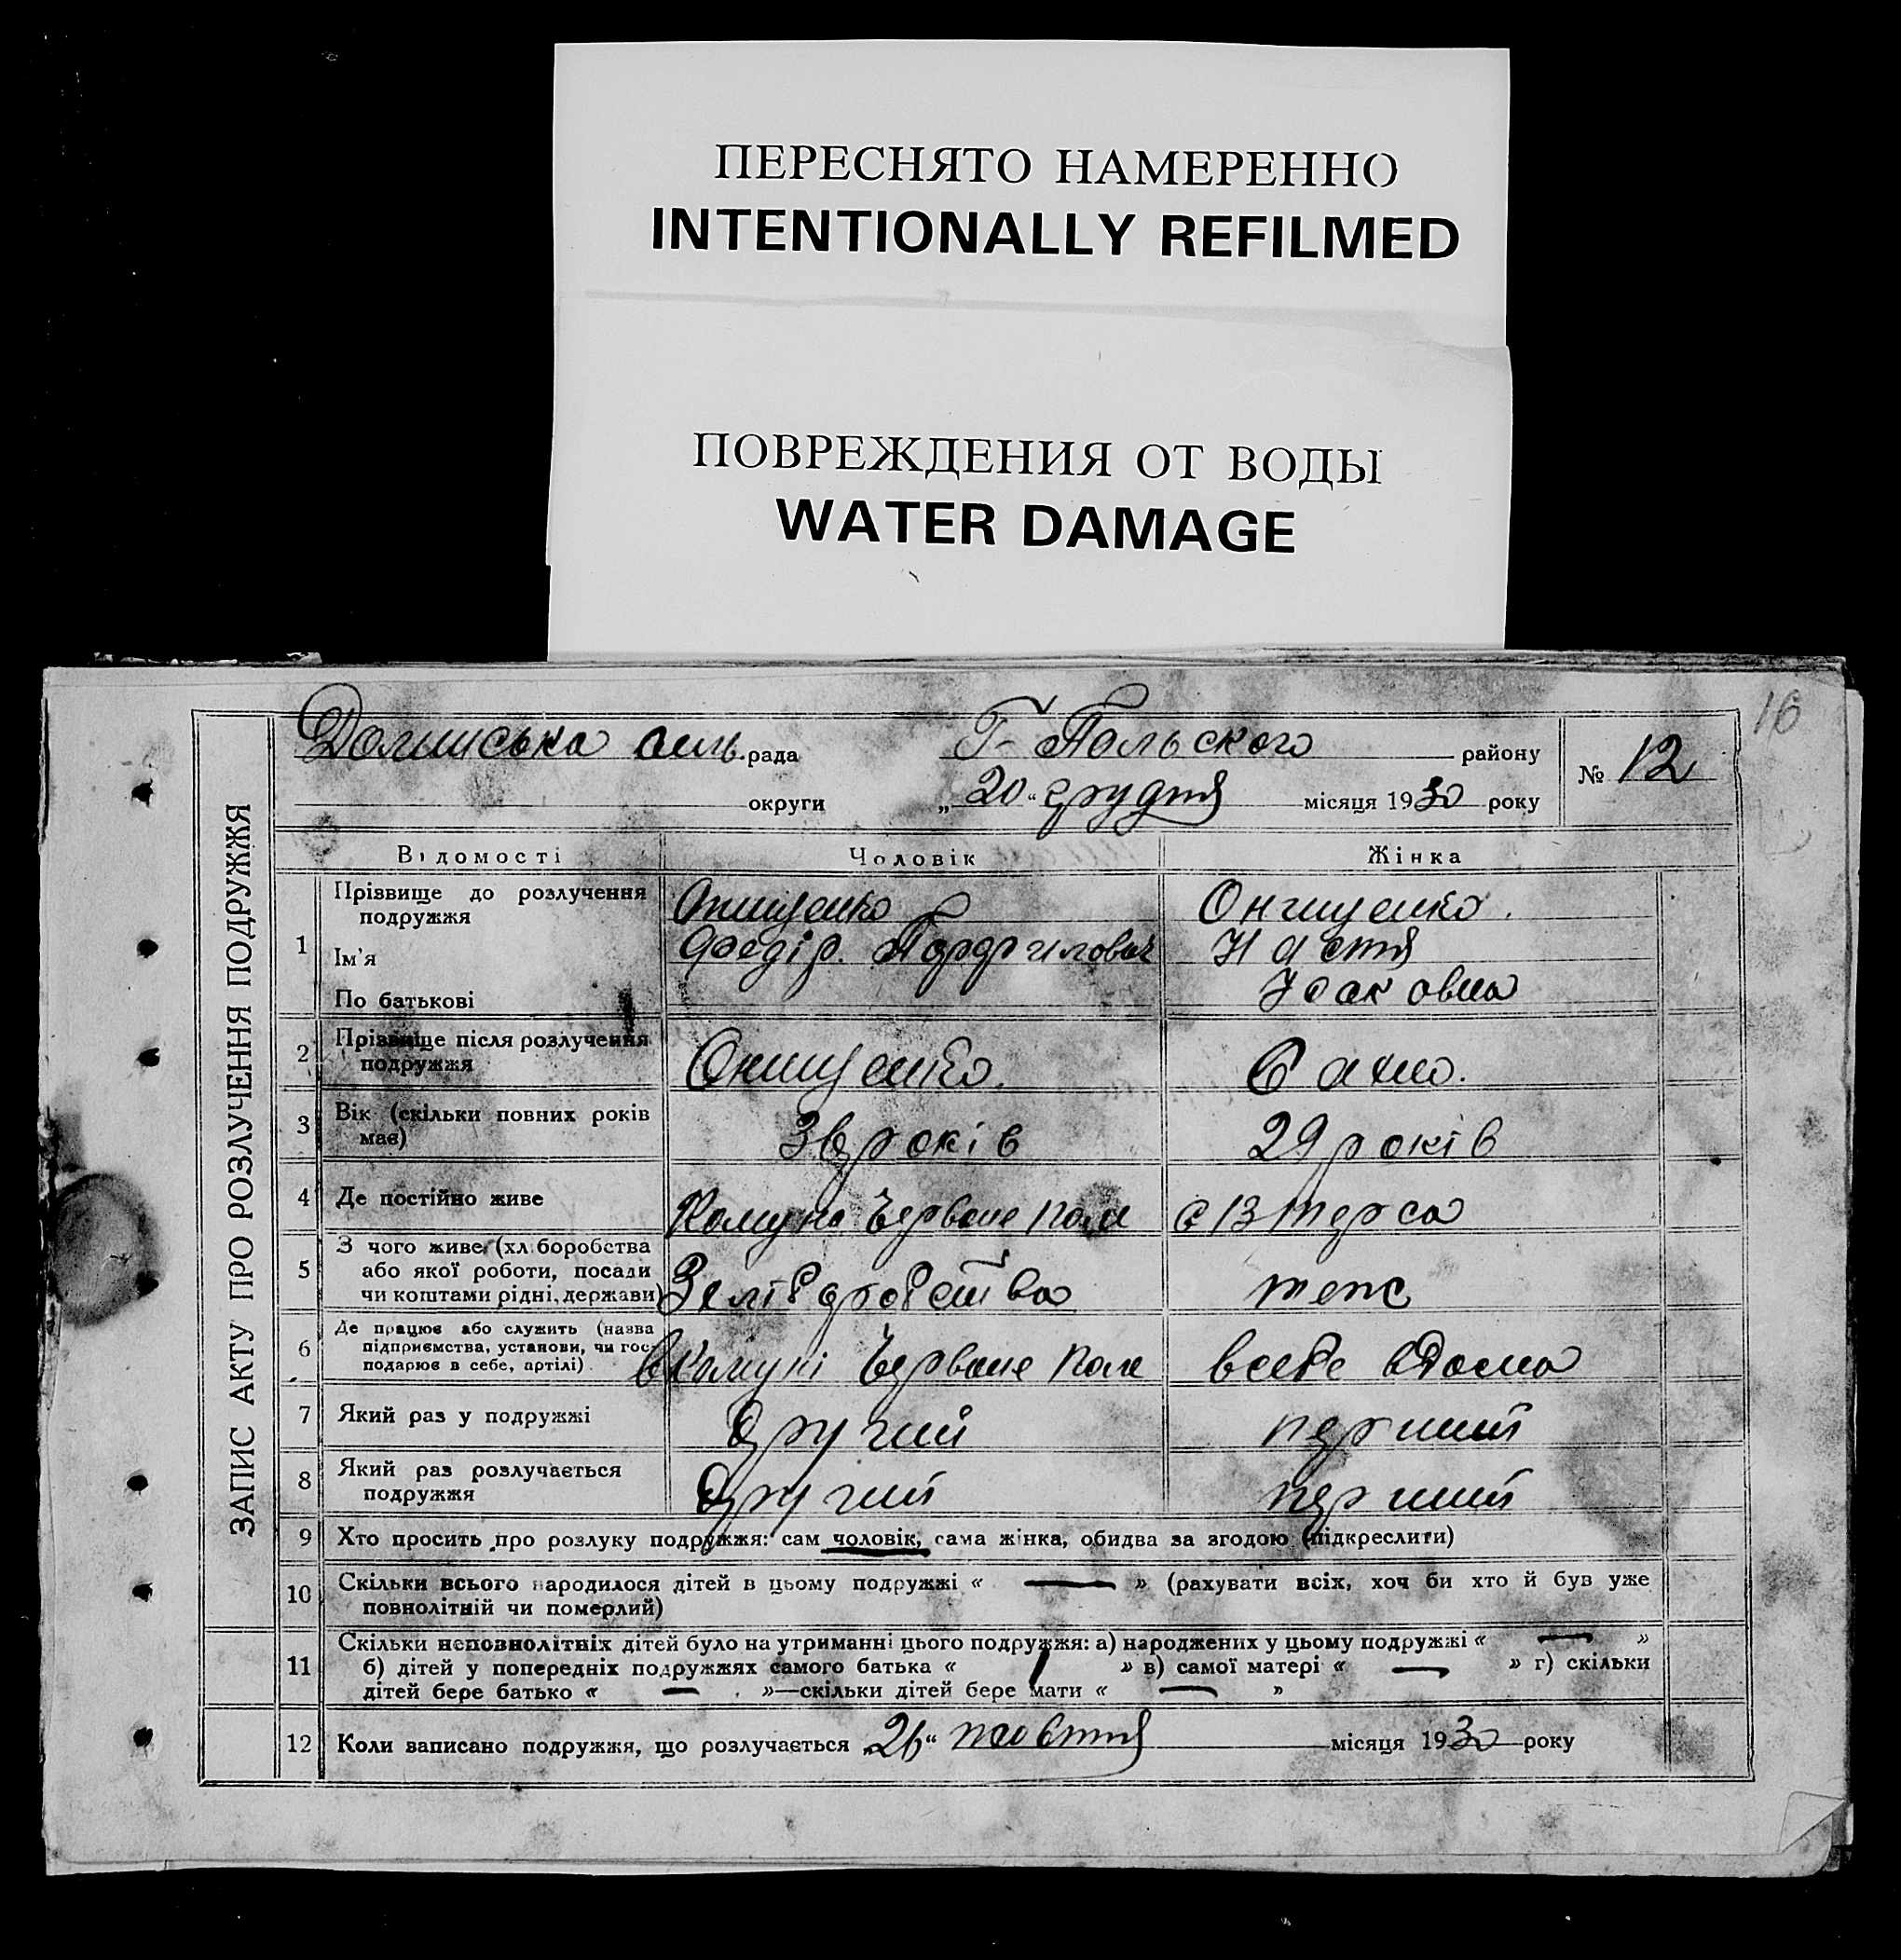 ПЕРЕСНЯТО НАМЕРЕННО
INTENTIONALLY REFILMED
ПОВРЕЖДЕНИЯ ОТ ВОДЫ
WATER DAMAGE
16
ЗАПИС АКТУ ПРО РОЗЛУЧЕННЯ ПОДРУЖЖЯ
сель. рада Г-Польского району № 12
округи „20“ грудня місяця 1930 року
Відомості Чоловік Жінка
1 Прізвище до розлучення подружжя Онищенко Онищенко.
Ім'я Федір. Настя
По батькові
2 Прізвище після розлучення подружжя Онищенко.
3 Вік (скільки повних років має) років 29 років
4 Де постійно живе Комуна Червоне Поле с Вітерса
5 З чого живе (хліборобства або якої роботи, посади чи коштами рідні, держави) теж
6 Де працює або служить (назва підприємства, установи, чи господарює в себе, артілі) в Комуні Червоне Поле всебе вдома
7 Який раз у подружжі Другий перший
8 Який раз розлучається подружжя Другий перший
9 Хто просить про розлуку подружжя: сам чоловік, сама жінка, обидва за згодою (підкреслити)
10 Скільки всього народилося дітей в цьому подружжі « — » (рахувати всіх, хоч би хто й був уже
повнолітній чи померлий)
11 Скільки неповнолітніх дітей було на утриманні цього подружжя: а) народжених у цьому подружжі « — »
б) дітей у попередніх подружжях самого батька « 1 » в) самої матері « — » г) скільки
дітей бере батько « — »—скільки дітей бере мати « — »
12 Коли записано подружжя, що розлучається „26“ жовтня місяця 1930 року